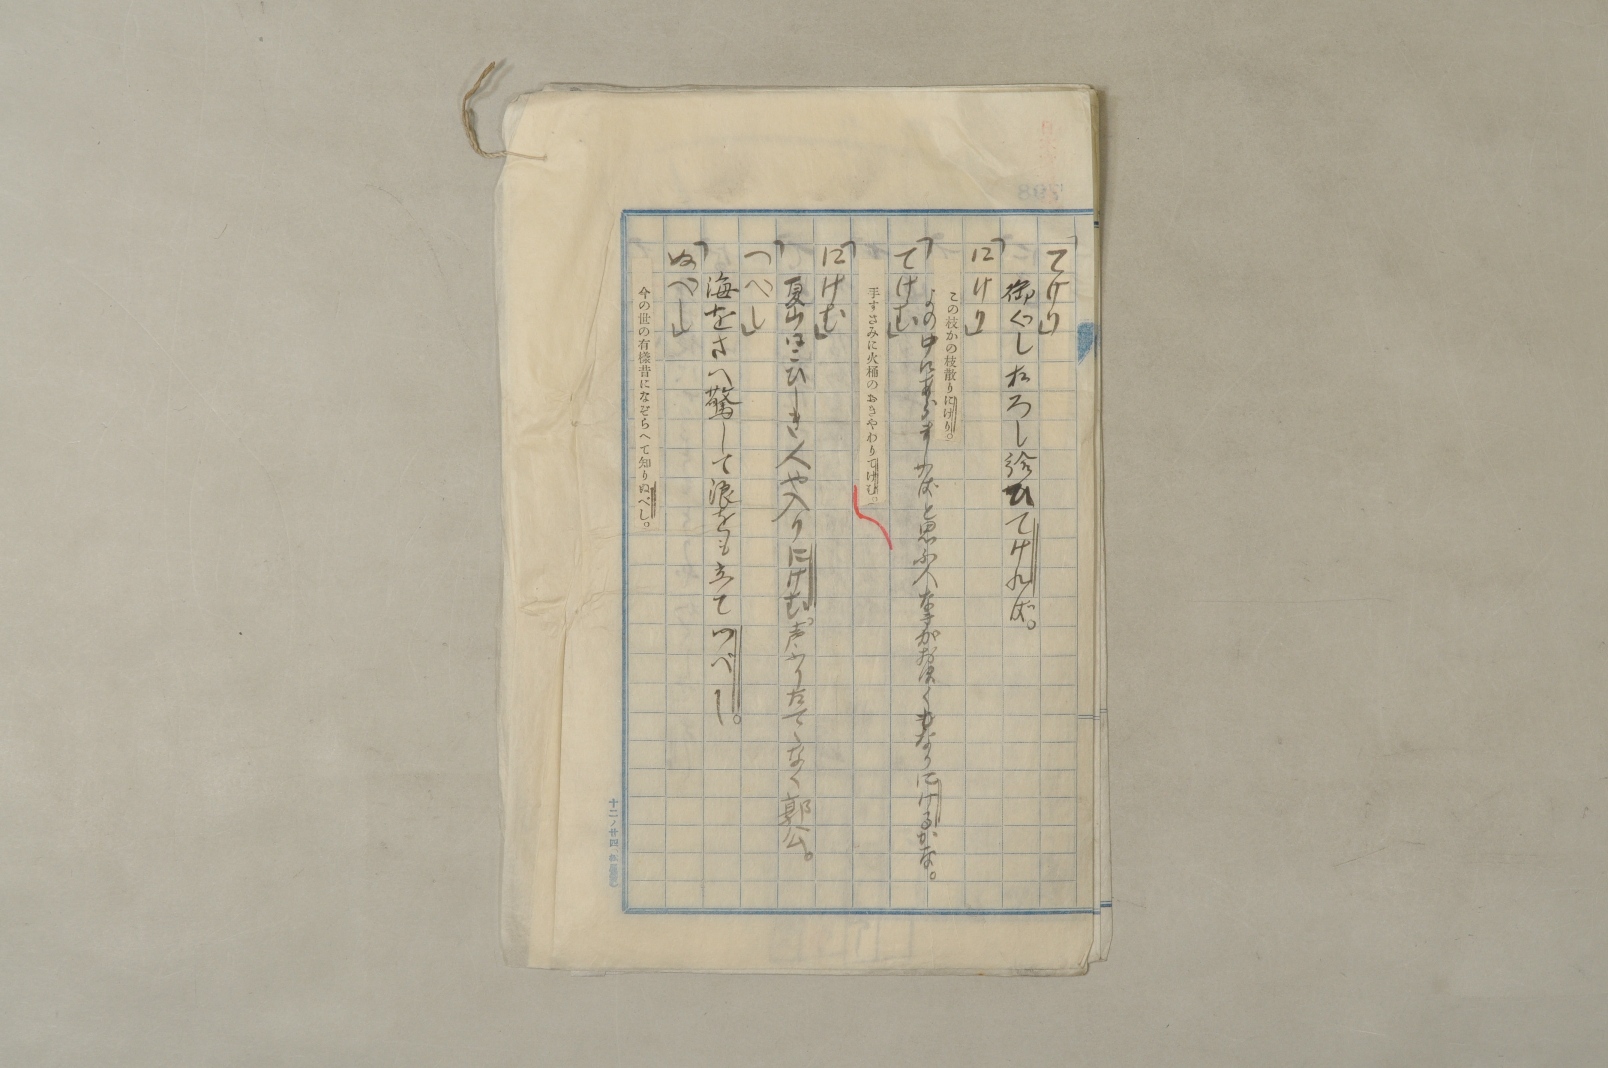 「てけり」
御ぐしおろし給ひてければ。
「にけり」
この枝かの枝散りにけり。
よの中にあらましかばと思ふ人なきがおほくもなりにけるかな。
「てけむ」
手すさみに火桶のおきやわりてけむ。
「にけむ」
夏山にこひしき人や入りにけむ。声ふりたてゝなく郭公。
「つべし」
海をさへ驚して浪をも立てつべし。
「ぬべし」
今の世の有樣昔になぞらへて知りぬべし。
十二ノ廿四